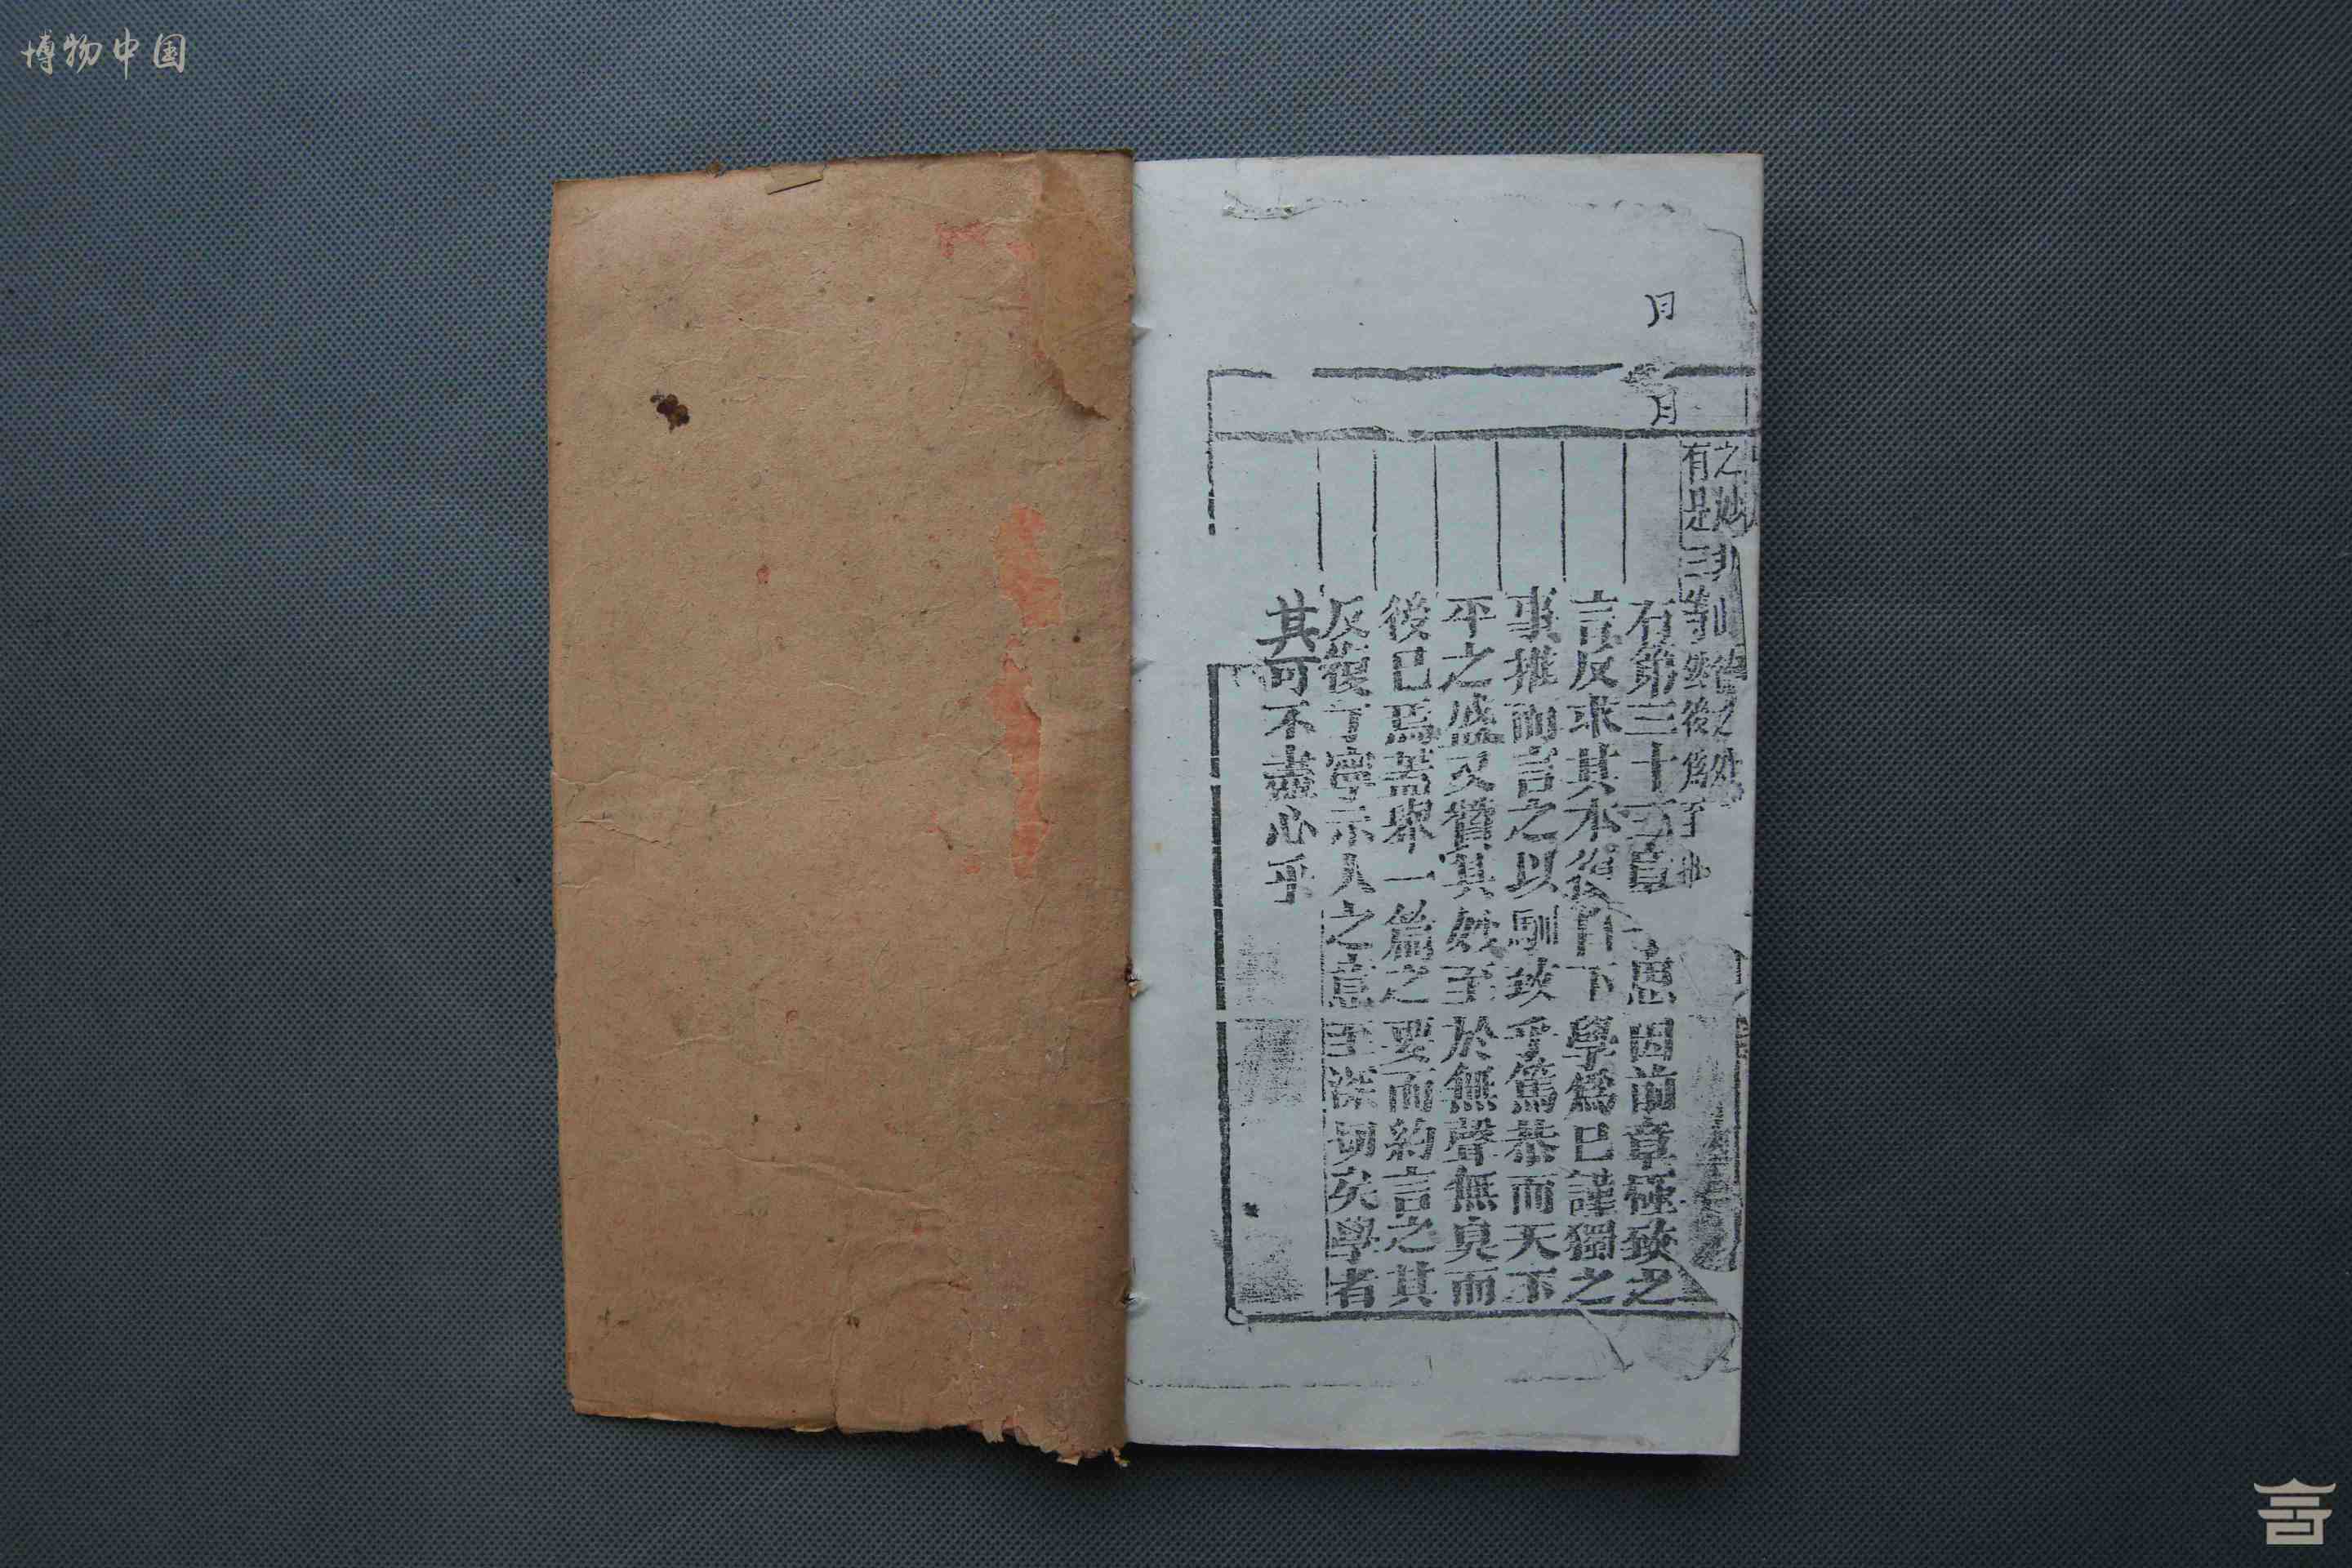 博物中国
月
月
之妙
有是三等然後爲
右第三十三章
思因前章極致之
言反求其本復自下學爲己謹獨之
事推而言之以馴致乎篤恭而天下
平之盛又贊其妙至於無聲無臭而
後已焉蓋舉一篇之要而約言之其
反復丁寧示人之意至深切矣學者
其可不盡心乎